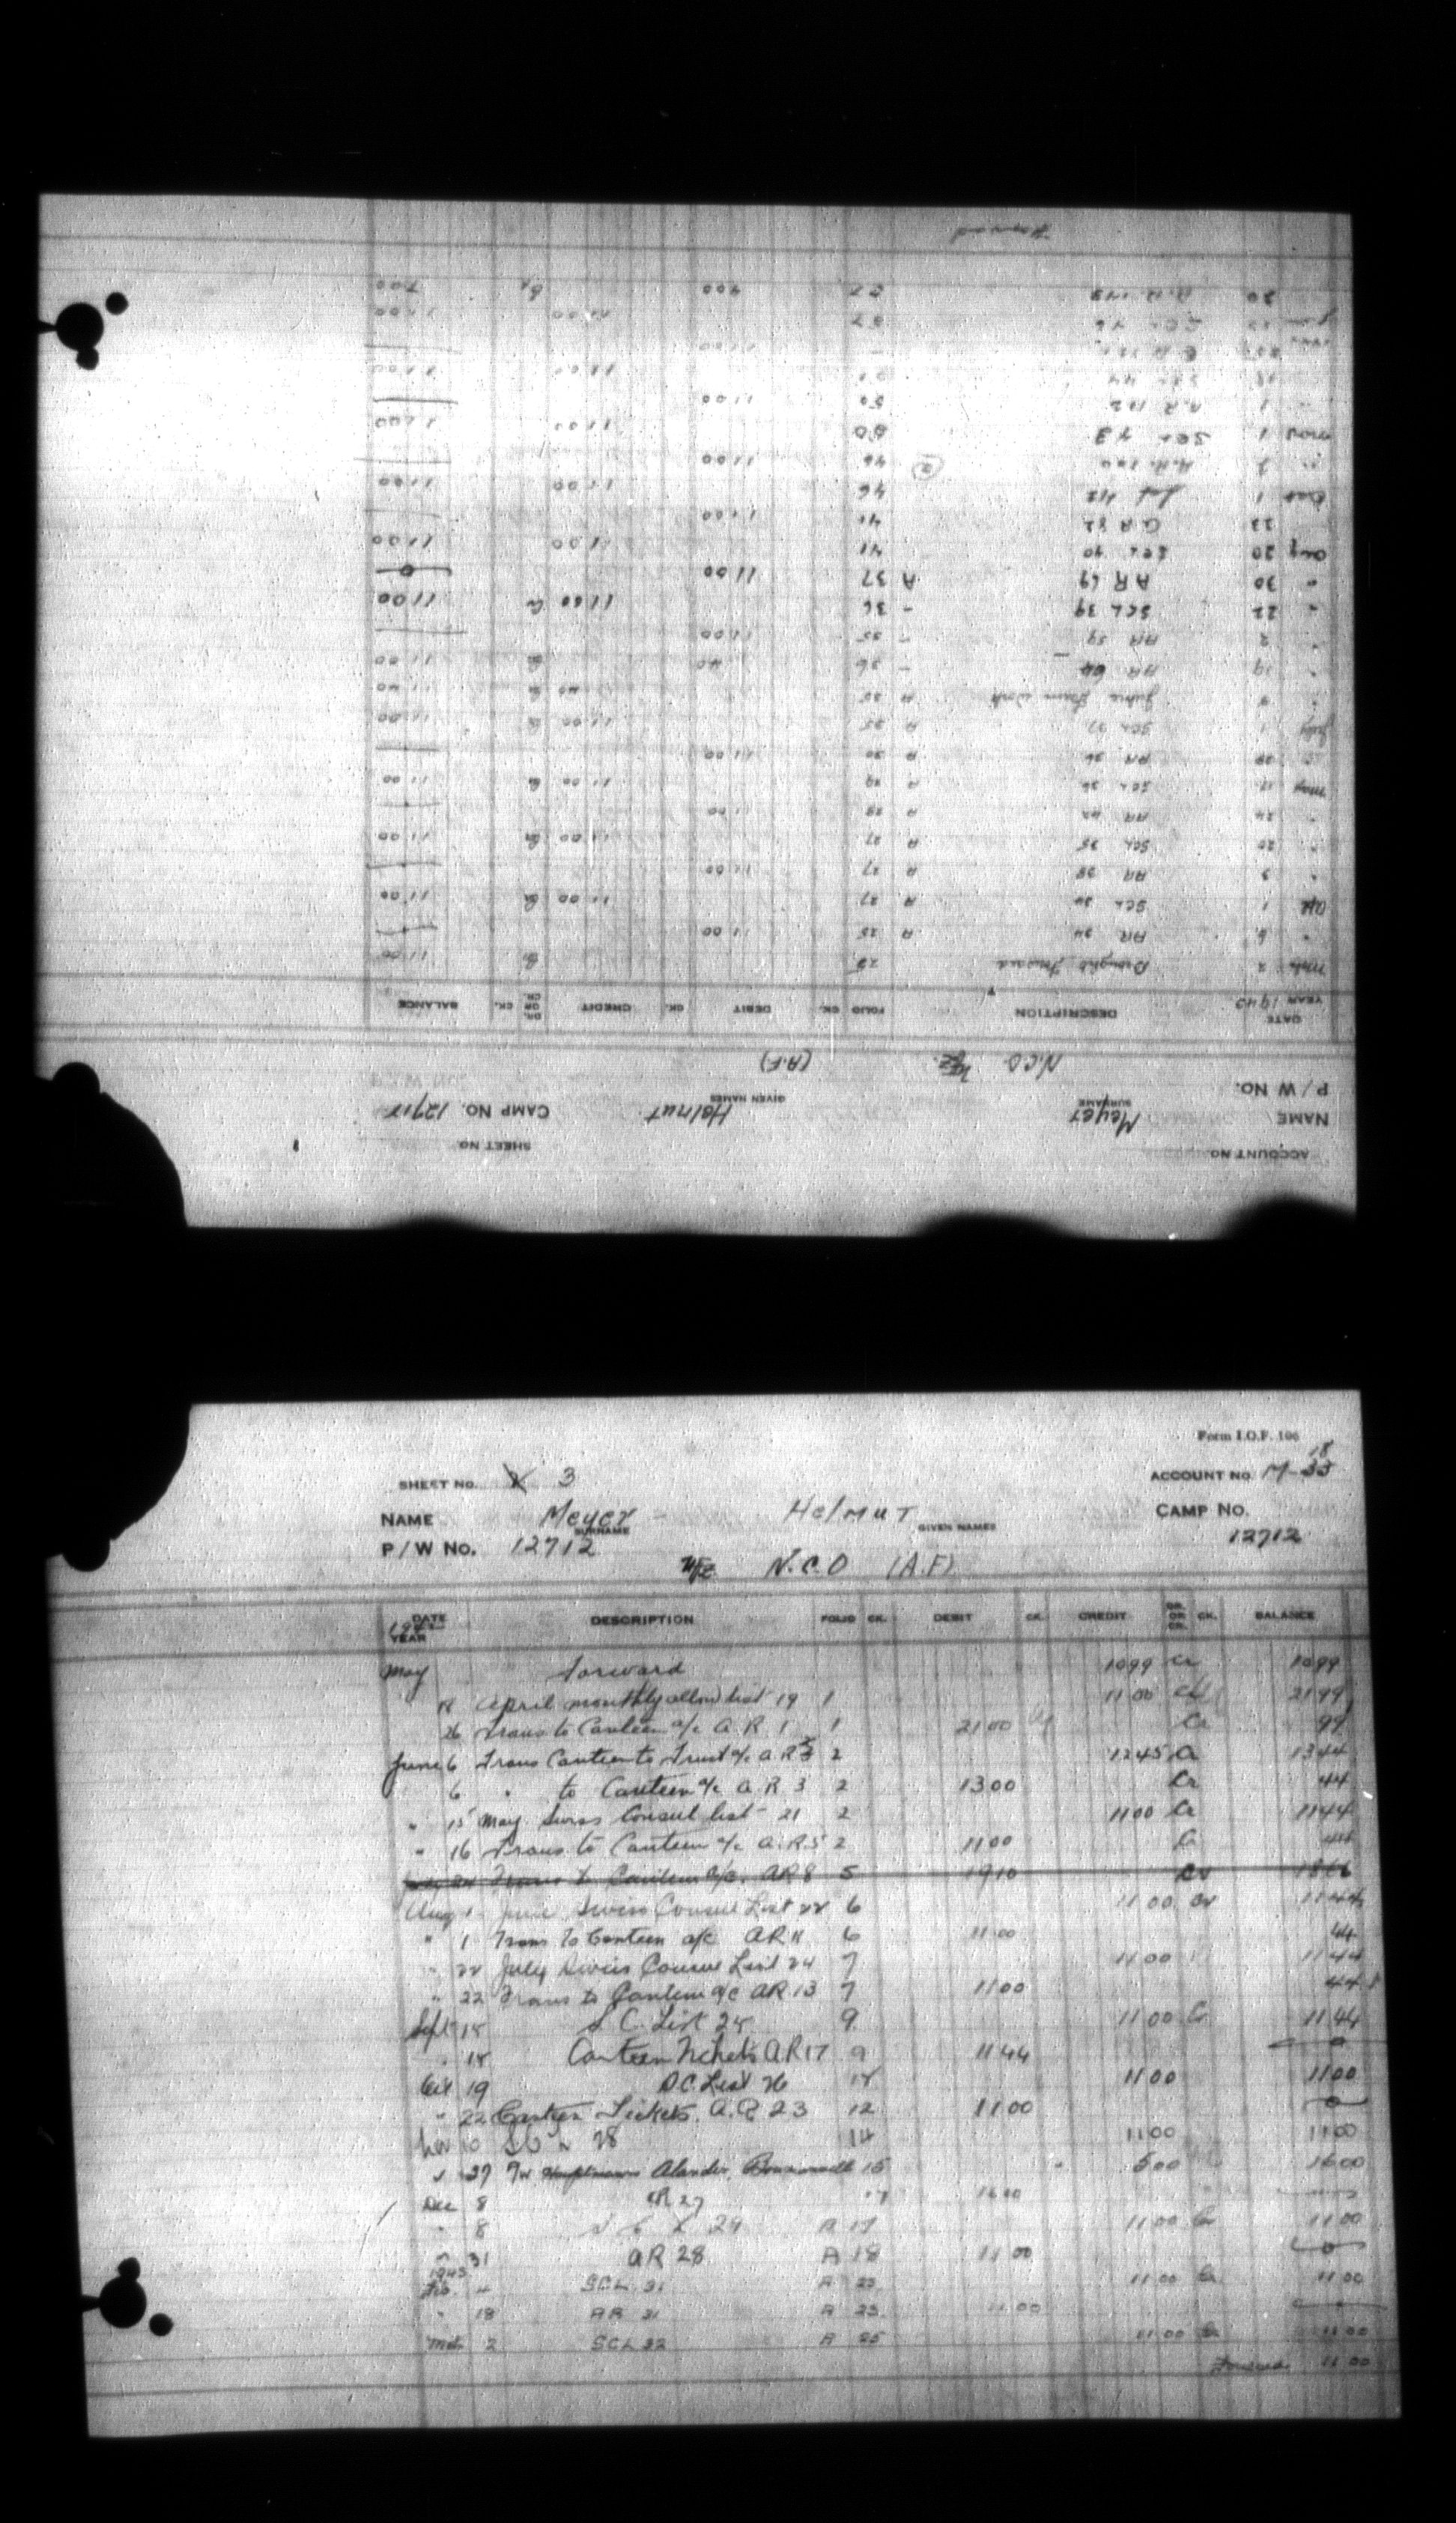 ACCOUNT NO.
SHEET NO.
NAME Meyer SURNAME Helmut GIVEN NAMES CAMP NO. 12712
P/W NO. N.C.O (A.F.)
DATE YEAR 1943 DESCRIPTION FOLIO CK. DEBIT CK. CREDIT DR. OR CR. CK. BALANCE
Mch 2 Brought Forward 25 Cr 11 00
" 6 AR 34 A 25 11 00
Apl 1 SCL 34 A 27 11 00 Cr 11 00
" 3 AR 38 A 27 11 00
" 20 SCL 35 A 27 11 00 Cr 11 00
" 24 AR 42 A 29 11 00
May 17 SCL 36 A 29 11 00 Cr 11 00
" 28 AR A 30 11 00
July 1 SCL 37 A 35 11 00 Cr 11 00
" June Farm Work A 35 40 Cr 11 40
" 19 AR 64 - 36 40 Cr 11 00
" 2 AR 59 - 35 11 00
" 22 SCL 39 - 36 11 00 Cr 11 00
" 30 AR 69 A 37 11 00 0
Aug 20 SCL 40 41 11 00 11 00
23 AR 82 41 11 00
Oct 1 42 46 11 00 11 00
" 2 A.R. 100 46 11 00
Nov 1 SCL 43 50 11 00 11 00
" 1 A.R 112 50 11 00
18 SCL 44 11 00 11 00
11 00
SCL 46 57 11 00
30 A.R. 143 57 4 00 Cr 7 00
Forward
Form I.O.F. 106
SHEET NO. 3 ACCOUNT NO. M-18
NAME Meyer SURNAME Helmut GIVEN NAMES CAMP NO. 12712
P/W NO. 12712 Ufz N.C.O (A.F)
DATE YEAR DESCRIPTION FOLIO CK. DEBIT CK. CREDIT DR. OR CR. CK. BALANCE
May forward 10 99 Cr 10 99
18 April monthly allow list 19 1 11 00 21 99
26 Trans to Canteen a/c A.R. 1 1 21 00 Cr 99
June 6 Trans Canteen to Trust a/c A.R. 2 12 45 Cr 13 44
6 " to Canteen a/c A.R. 3 2 13 00 Cr 44
" 15 May Swiss Consul list 21 2 11 00 Cr 11 44
" 16 Trans to Canteen a/c A.R.5 2 11 00 Cr 44
Trans to Canteen a/c. AR 8 5 19 10 Cr 18 66
Aug 1 June Swiss Consul List 22 6 11 00 Cr 11 44
" 1 Trans to Canteen a/c AR 11 6 11 00 44
" 22 July Swiss Consul List 24 7 11 00 11 44
" 22 Trans to Canteen a/c AR 13 7 11 00 44
Sept 18 S.C. List 25 9 11 00 Cr 11 44
" 18 Canteen Tickets AR 17 9 11 44 0
Oct 19 S.C. List 26 12 11 00 11 00
" 22 Canteen Tickets. A.R 23 12 11 00 0
Nov 10 S C L 28 14 11 00 11 00
" 27 Alander 15 5 00 16 00
Dec 8 AR 27 17 16 00
" 8 S C L 29 A 17 11 00 Cr 11 00
" 31 AR 28 A 18 11 00 0
1943
Feb. 4 SCL 31 A 23 11 00 Cr 11 00
" 18 AR 31 A 23 11 00
Mch 2 SCL 32 A 25 11 00 Cr 11 00
Forward 11 00